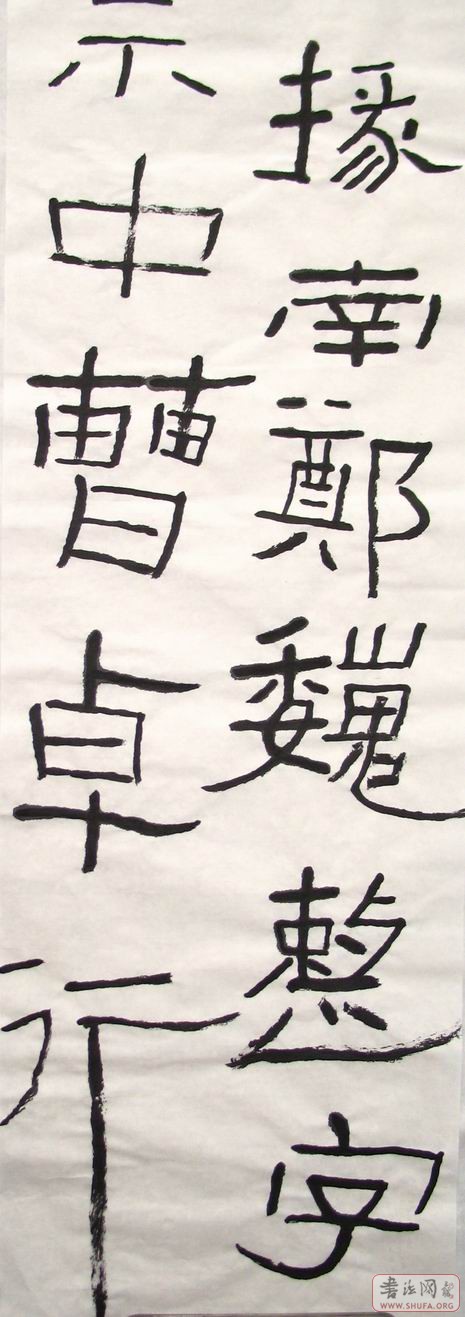 掾南鄭魏整字
中曹卓行
書法网
WWW.SHUFA.ORG